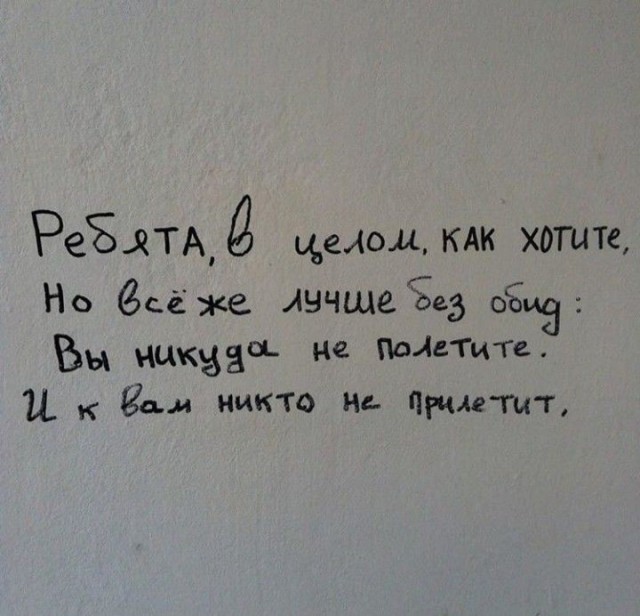 Ребята, в целом, как хотите,
Но всё же лучше без обид:
Вы никуда не полетите.
И к вам никто не прилетит.